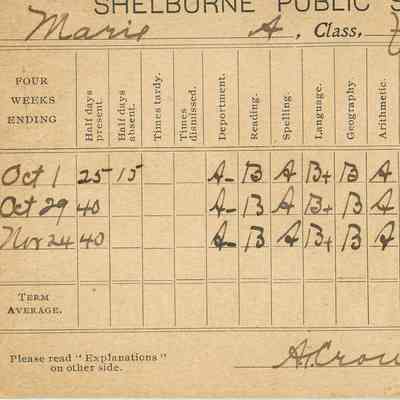 SHELBURNE PUBLIC S
Marie A , Class,
FOUR WEEKS ENDING Half days present. Half days absent. Times tardy. Times dismissed. Deportment. Reading. Spelling. Language. Geography. Arithmetic.
Oct 1 25 15 A- B A B+ B A
Oct 29 40 A- B A B+ B A
Nov 24 40 A- B A B+ B A
TERM AVERAGE.
Please read "Explanations"
on other side.